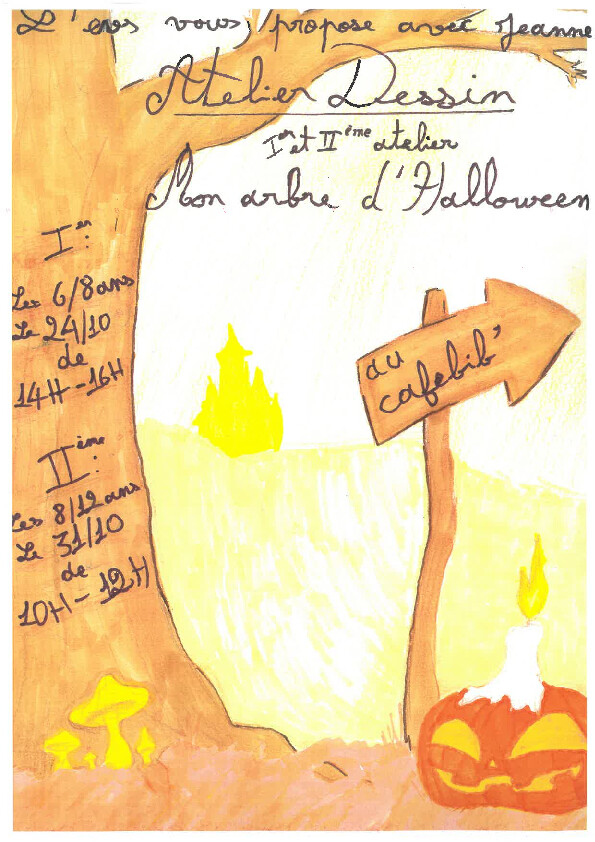 L'evs vous propose avec Jeanne
Atelier Dessin
Ier et IIème atelier
Mon arbre d'Halloween
Ier :
Les 6/8 ans
Le 24/10
de
14H - 16H
au
cafebib'
IIème :
Les 8/12 ans
Le 31/10
de
10H - 12H